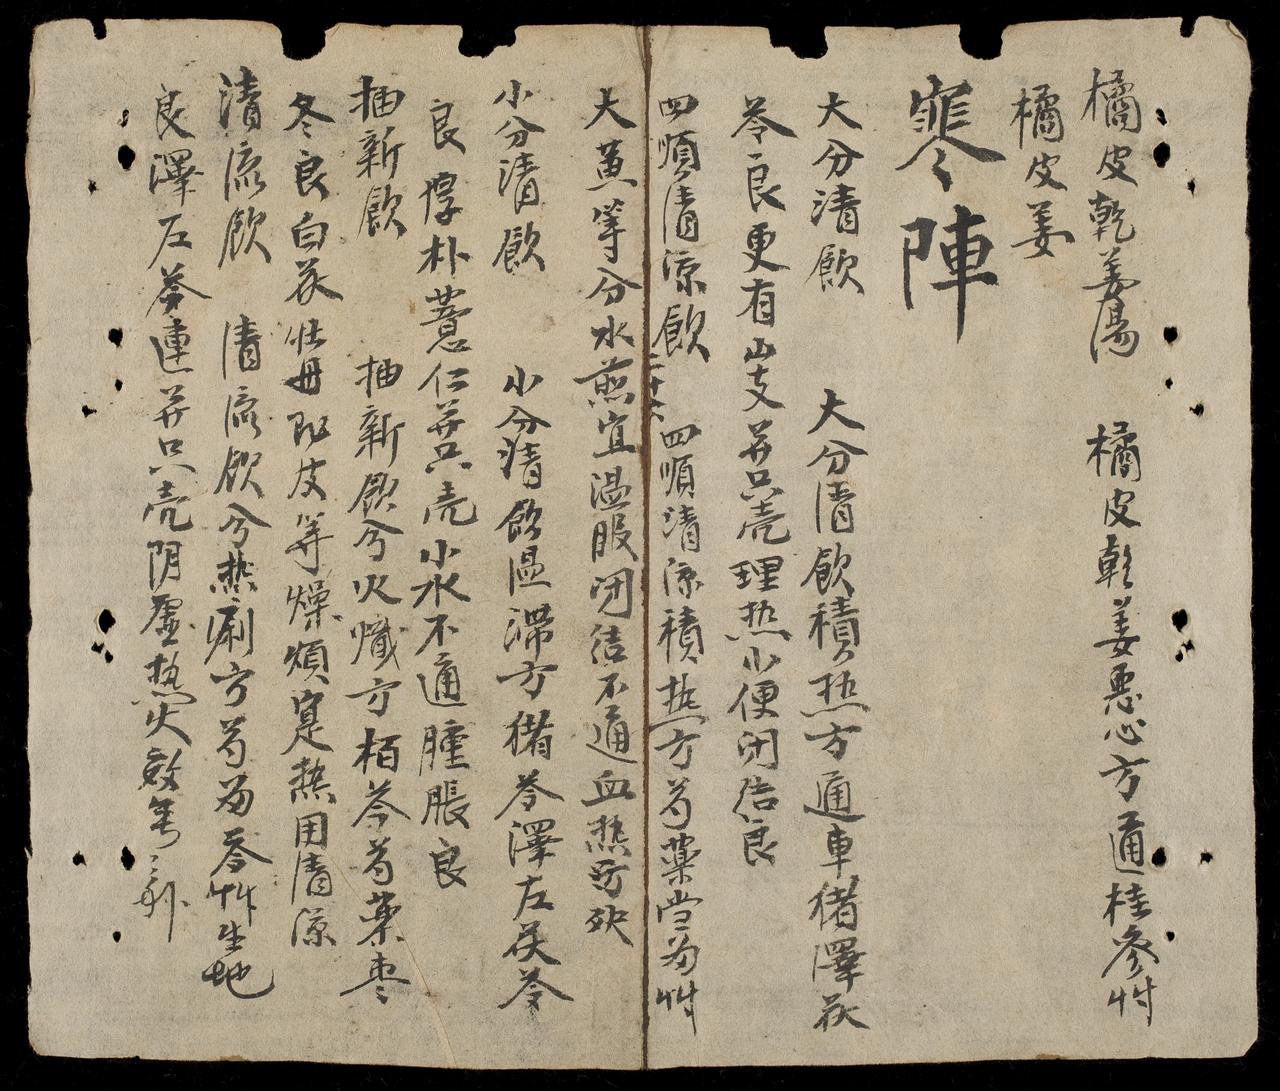 橘皮乾姜湯 橘皮乾姜惡心方通桂參艸
橘皮姜
寒陣
大分清飲 大分清飲積热方通車猪澤茯
苓良更有山支并只壳理热小便闭结良
四順清凉飲 四順清凉積热方芍藥当艸
大黄等分水煎宜温服闭结不通血热
小分清飲 小分清飲温滞方猪苓澤左茯苓
良厚朴薏仁并只壳小水不通腫脹良
抽新飲 抽新飲兮火熾方栢芩芍藥枣
冬良白茯牡丹皮等燥煩寔热用清凉
清流飲 清流飲兮热痢方芍苓艸生地
良澤左芩連并只壳阴虚热火效